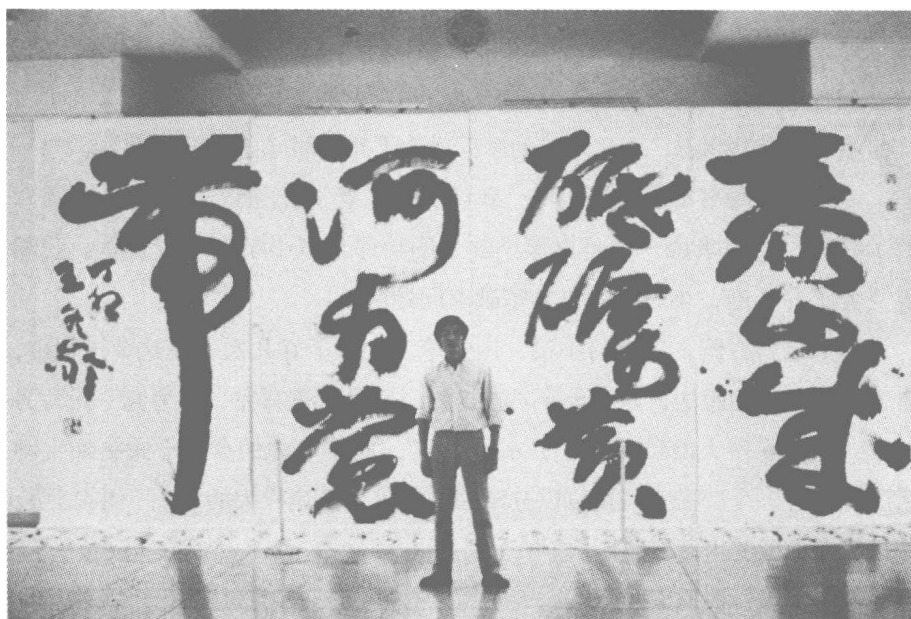 泰山成
砥礪黃
河為裳
帶
丁卯
王冬齡